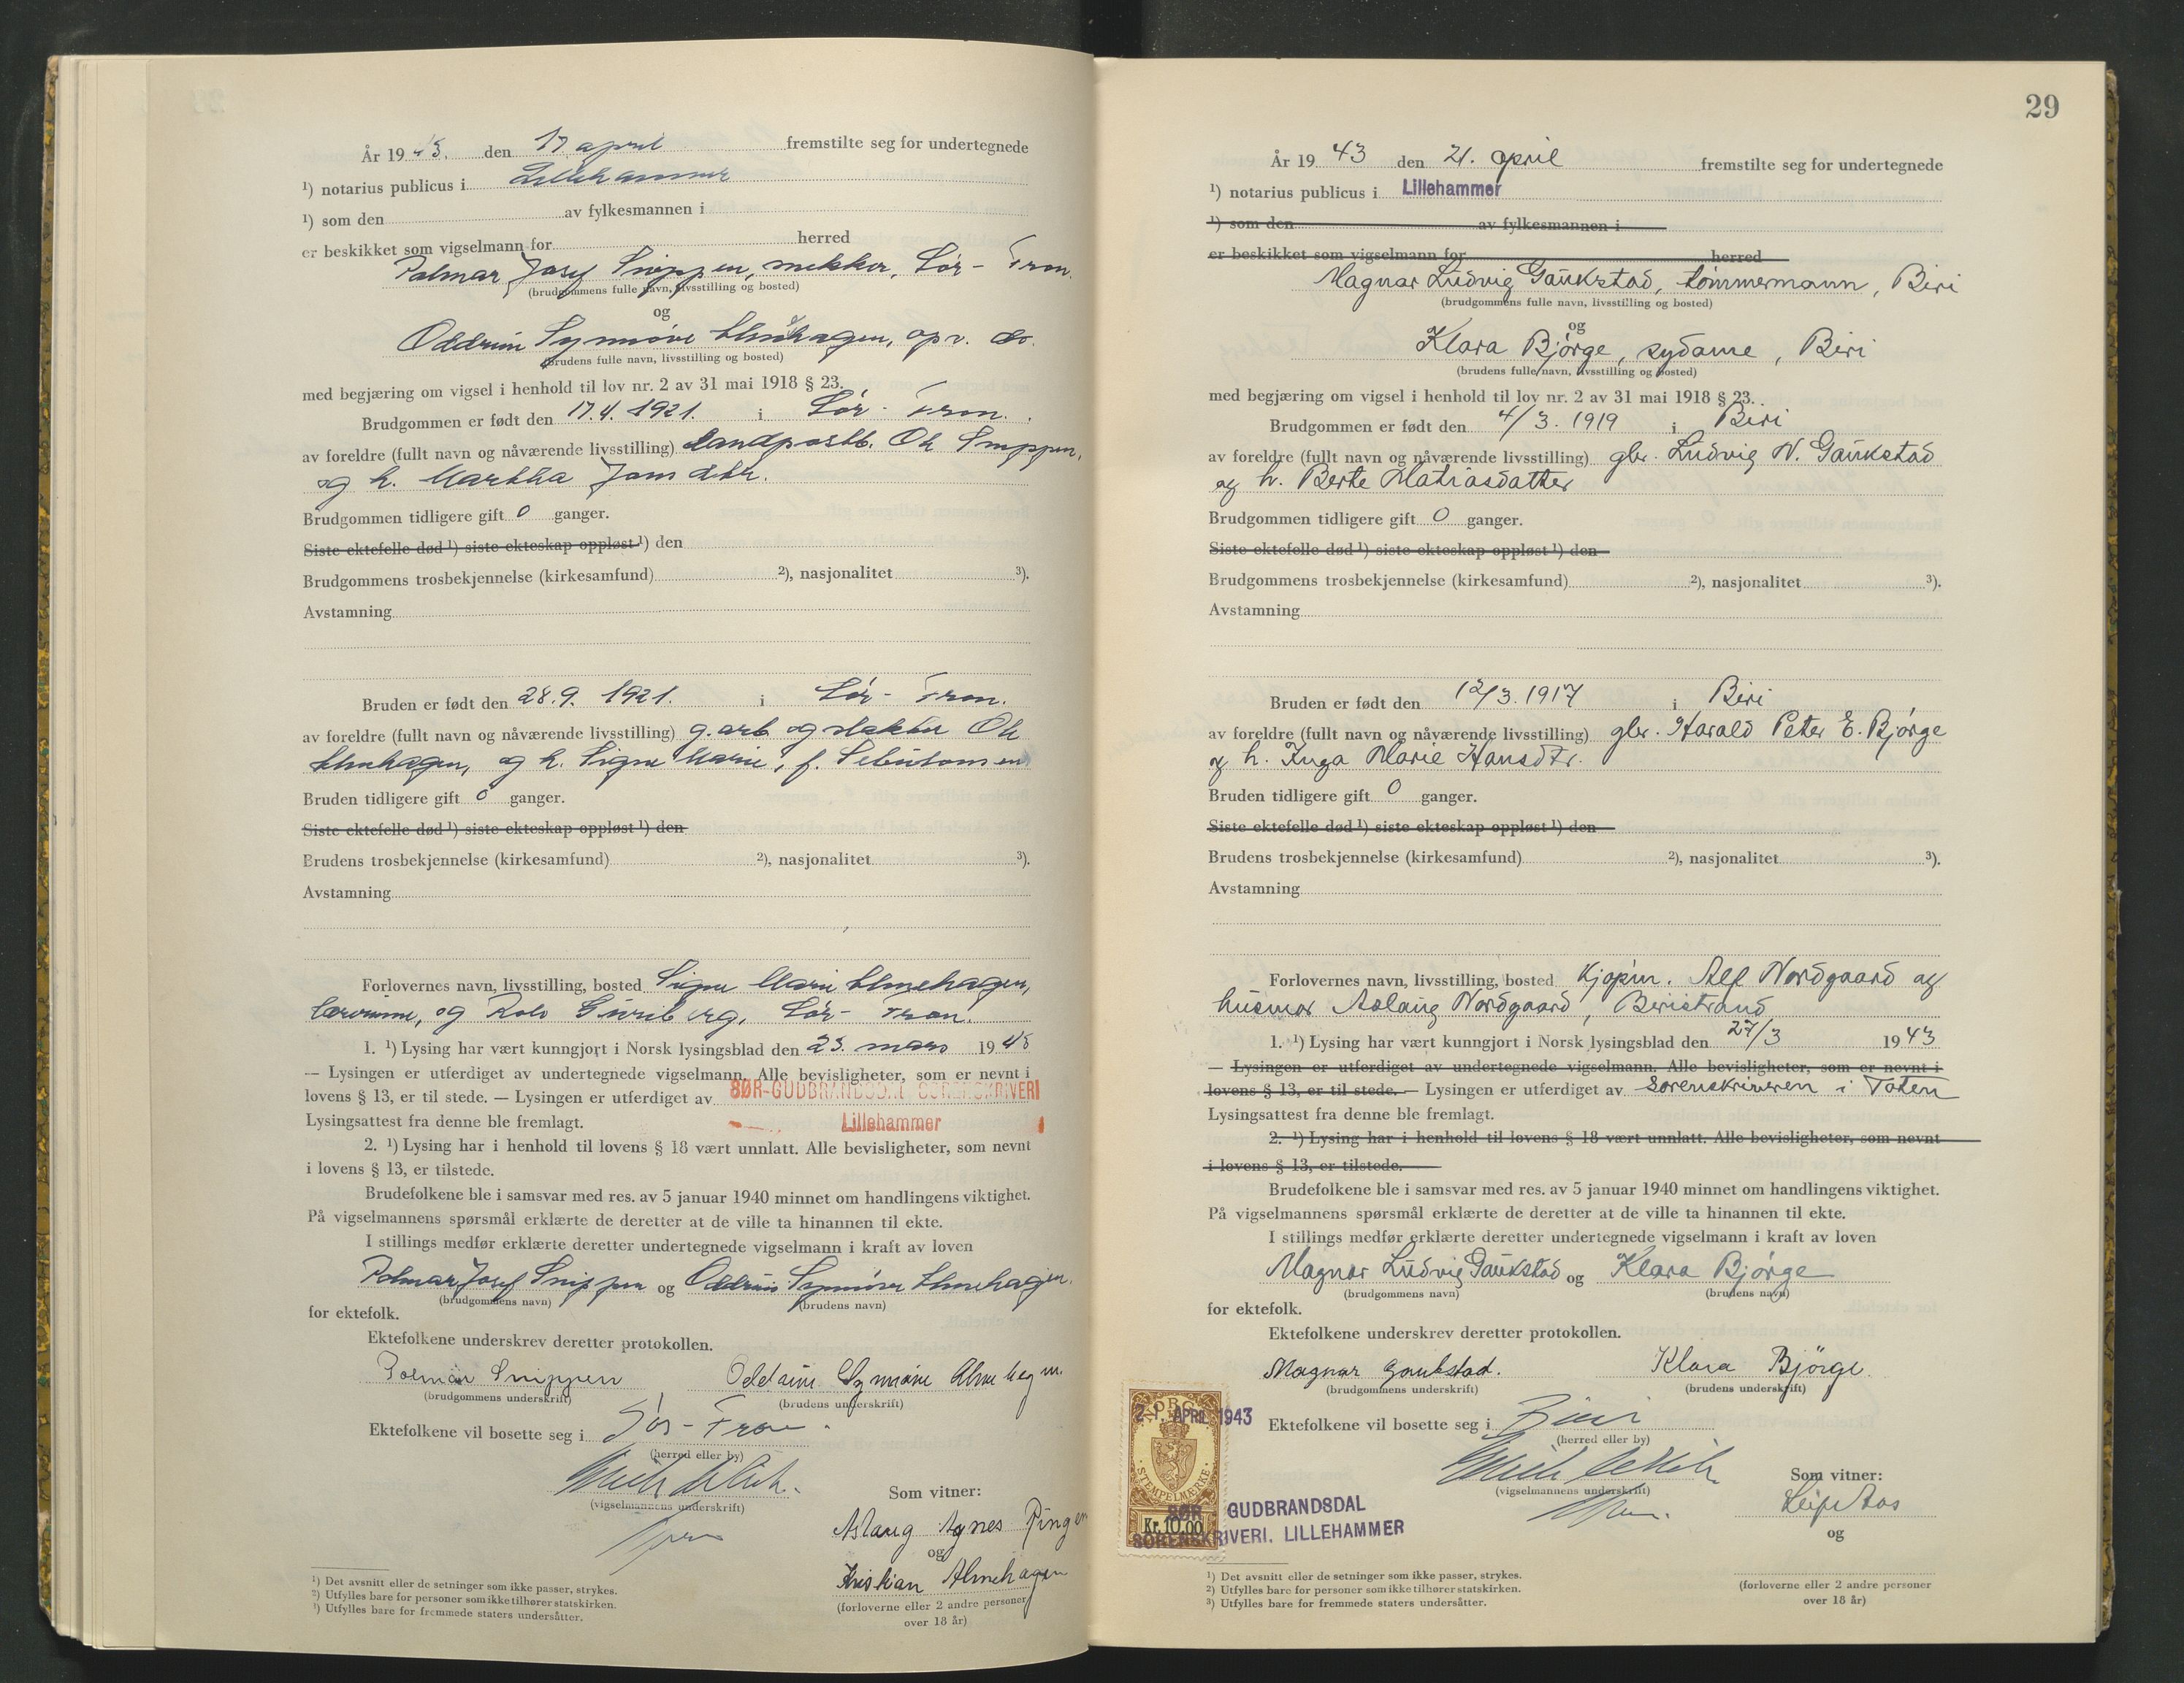 År 1943. den 17 april fremstilte seg for undertegnede
¹) notarius publicus i Lillehammer
¹) som den av fylkesmannen i
er beskikket som vigselmann for herred
Polmar Josef Snippen, mekker, Sør-Fron.
(brudgommens fulle navn, livsstilling og bosted)
og
Oddrun Synnøve Almehagen, opv. do.
(brudens fulle navn, livsstilling og bosted)
med begjæring om vigsel i henhold til lov nr. 2 av 31 mai 1918 § 23.
Brudgommen er født den 17.4.1921. i Sør-Fron.
av foreldre (fullt navn og nåværende livsstilling) landpostb. Ole Snippen,
og h. Martha Jansdtr.
Brudgommen tidligere gift 0 ganger.
Siste ektefelle død ¹) siste ekteskap oppløst ¹) den
Brudgommens trosbekjennelse (kirkesamfund) ²), nasjonalitet ³).
Avstamning
Bruden er født den 28.9. 1921. i Sør-Fron.
av foreldre (fullt navn og nåværende livsstilling) g.arb. og slakter Ole
Almehagen, og h. Signe Marie, f.
Bruden tidligere gift 0 ganger.
Siste ektefelle død ¹) siste ekteskap oppløst ¹) den
Brudens trosbekjennelse (kirkesamfund) ²), nasjonalitet ³).
Avstamning
Forlovernes navn, livsstilling, bosted Signe Marie Almehagen,
og Sør-Fron.
1. ¹) Lysing har vært kunngjort i Norsk lysingsblad den 23. mars 1943
— Lysingen er utferdiget av undertegnede vigselmann. Alle bevisligheter, som er nevnt i
lovens § 13, er til stede. — Lysingen er utferdiget av SØR-GUDBRANDSDAL SORENSKRIVERI
Lysingsattest fra denne ble fremlagt. Lillehammer
2. ¹) Lysing har i henhold til lovens § 18 vært unnlatt. Alle bevisligheter, som nevnt
i lovens § 13, er tilstede.
Brudefolkene ble i samsvar med res. av 5 januar 1940 minnet om handlingens viktighet.
På vigselmannens spørsmål erklærte de deretter at de ville ta hinannen til ekte.
I stillings medfør erklærte deretter undertegnede vigselmann i kraft av loven
Polmar Josef Snippen og Oddrun Synnøve Almehagen.
(brudgommens navn) (brudens navn)
for ektefolk.
Ektefolkene underskrev deretter protokollen.
Polmar Snippen Oddrun Synnøve Almehagen.
(brudgommens underskrift) (brudens underskrift)
Ektefolkene vil bosette seg i Sør-Fron.
(herred eller by)
(vigselmannens underskrift)
Som vitner:
Aslaug Agnes Ringen
og
Kristian Almehagen
(forloverne eller 2 andre personer
over 18 år)
¹) Det avsnitt eller de setninger som ikke passer, strykes.
²) Utfylles bare for personer som ikke tilhører statskirken.
³) Utfylles bare for fremmede staters undersåtter.
29
År 1943 den 21. april fremstilte seg for undertegnede
¹) notarius publicus i Lillehammer
¹) som den av fylkesmannen i
er beskikket som vigselmann for herred
Magnar Ludvig Gaukstad, tømmermann, Biri
(brudgommens fulle navn, livsstilling og bosted)
og
Klara Bjørge, sydame, Biri
(brudens fulle navn, livsstilling og bosted)
med begjæring om vigsel i henhold til lov nr. 2 av 31 mai 1918 § 23.
Brudgommen er født den 4/3. 1919 i Biri
av foreldre (fullt navn og nåværende livsstilling) gbr. Ludvig N. Gaukstad
og h. Berte Matiasdatter
Brudgommen tidligere gift 0 ganger.
Siste ektefelle død ¹) siste ekteskap oppløst ¹) den
Brudgommens trosbekjennelse (kirkesamfund) ²), nasjonalitet ³).
Avstamning
Bruden er født den 12/3. 1917 i Biri
av foreldre (fullt navn og nåværende livsstilling) gbr. Harald Peter E. Bjørge
og h. Inga Marie Hansdtr.
Bruden tidligere gift 0 ganger.
Siste ektefelle død ¹) siste ekteskap oppløst ¹) den
Brudens trosbekjennelse (kirkesamfund) ²), nasjonalitet ³).
Avstamning
Forlovernes navn, livsstilling, bosted Kjøpm. Alf Nordgaard og
husmor Aslaug Nordgaard, Biristrand
1. ¹) Lysing har vært kunngjort i Norsk lysingsblad den 27/3 1943
— Lysingen er utferdiget av undertegnede vigselmann. Alle bevisligheter, som er nevnt i
lovens § 13, er til stede. — Lysingen er utferdiget av sorenskriveren i Toten
Lysingsattest fra denne ble fremlagt.
2. ¹) Lysing har i henhold til lovens § 18 vært unnlatt. Alle bevisligheter, som nevnt
i lovens § 13, er tilstede.
Brudefolkene ble i samsvar med res. av 5 januar 1940 minnet om handlingens viktighet.
På vigselmannens spørsmål erklærte de deretter at de ville ta hinannen til ekte.
I stillings medfør erklærte deretter undertegnede vigselmann i kraft av loven
Magnar Ludvig Gaukstad og Klara Bjørge
(brudgommens navn) (brudens navn)
for ektefolk.
Ektefolkene underskrev deretter protokollen.
Magnar Gaukstad. Klara Bjørge.
(brudgommens underskrift) (brudens underskrift)
Ektefolkene vil bosette seg i Biri
(herred eller by)
(vigselmannens underskrift)
Som vitner:
Leif Aas
og
(forloverne eller 2 andre personer
over 18 år)
NORGE
21. APRIL 1943
STEMPELMERKE
Kr. 10.00
SØR GUDBRANDSDAL
SORENSKRIVERI, LILLEHAMMER
¹) Det avsnitt eller de setninger som ikke passer, strykes.
²) Utfylles bare for personer som ikke tilhører statskirken.
³) Utfylles bare for fremmede staters undersåtter.